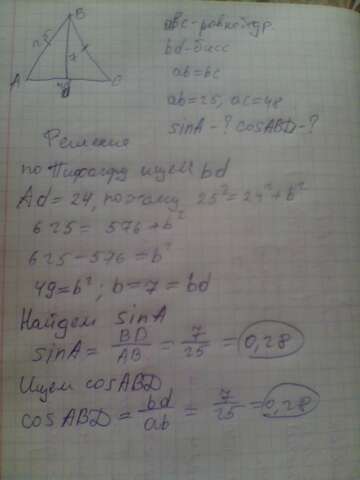 B
25
7
A
C
48
d
abc - равнобедр.
bd - бисс
ab = bc
ab = 25, ac = 48
sinA - ? cosABD - ?
Решение
по Пифагору ищем bd
Ad = 24, поэтому 25² = 24² + b²
625 = 576 + b²
625 - 576 = b²
49 = b²; b = 7 = bd
Найдем sinA
sinA = BD/AB = 7/25 = 0,28
Ищем cosABD
cosABD = bd/ab = 7/25 = 0,28